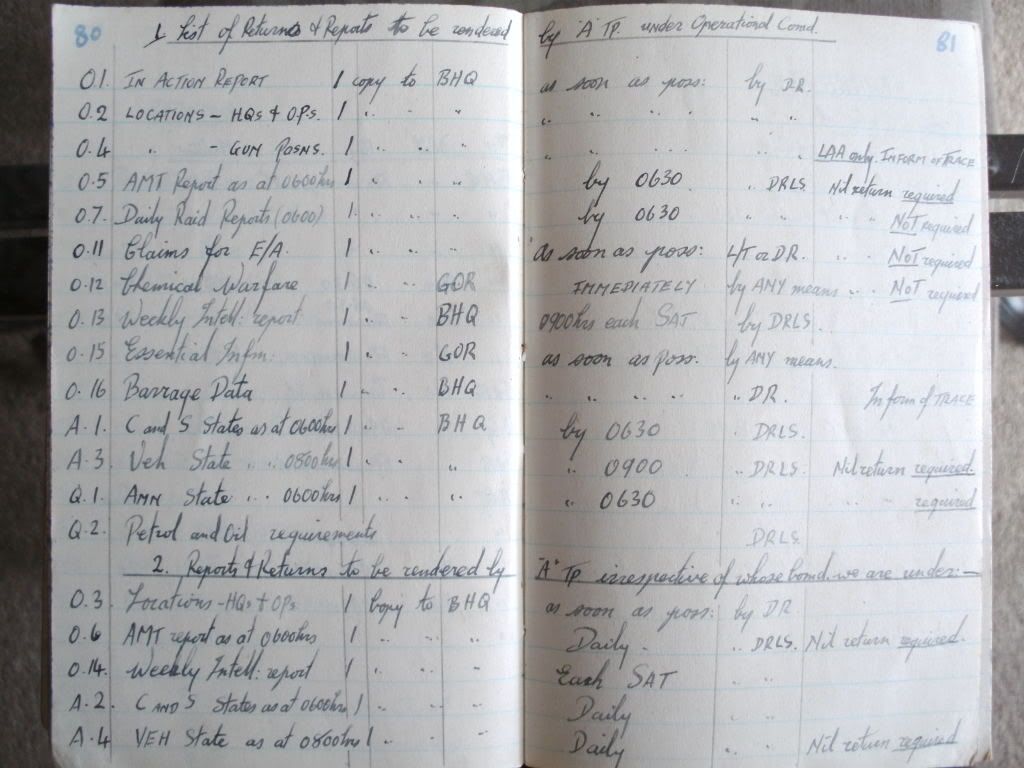 80 1. List of Returns & Reports to be rendered by "A" Tp. under Operational Comd. 81
O.1. IN ACTION REPORT 1 copy to BHQ as soon as poss: by DR.
O.2 LOCATIONS - HQs & OPs. 1 " " " " " " " " "
O.4 " - GUN POSNS. 1 " " " " " " " " " LAA only. IN FORM OF TRACE
O.5 AMT Report as at 0600hrs 1 " " " by 0630 " DRLS Nil return required
O.7. Daily Raid Reports (0600) 1 " " " by 0630 " " " " NOT required
O.11 Claims for E/A. 1 " " " as soon as poss: L/T or DR. " " NOT required
O.12 Chemical Warfare 1 " " GOR IMMEDIATELY by ANY means " " NOT required
O.13 Weekly Intell: report 1 " " BHQ 0900hrs each SAT by DRLS.
O.15 Essential Infm: 1 " " GOR as soon as poss: by ANY means.
O.16 Barrage Data 1 " " BHQ " " " " " DR. In form of TRACE
A.1. C and S States as at 0600hrs 1 " " BHQ by 0630 DRLS.
A.3. Veh State " " 0800hrs 1 " " " " 0900 " DRLS. Nil return required.
Q.1. AMN State " " 0600hrs 1 " " " " 0630 " " " " required
Q.2. Petrol and Oil requirements DRLS.
2. Reports & Returns to be rendered by "A" Tp irrespective of whose comd. we are under:-
O.3. Locations - HQs & OPs 1 copy to BHQ as soon as poss: by DR
O.6 AMT report as at 0600hrs 1 " " " Daily. " DRLS. Nil return required.
O.14. Weekly Intell: report 1 " " " Each SAT " "
A.2. C AND S States as at 0600hrs 1 " " " Daily " "
A.4 VEH State as at 0800hrs 1 " " " Daily " " Nil return required